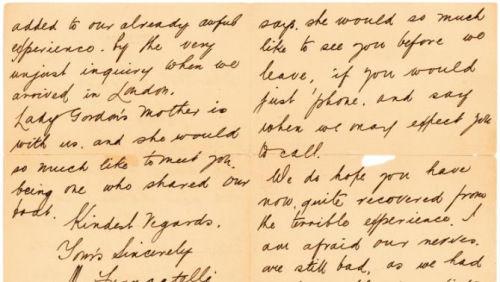 added to our already awful
experience. by the very
unjust inquiry when we
arrived in London.
Lady Gordon's Mother is
with us. and she would
so much like to meet you.
being one who shared our
boat.
Kindest Regards.
Yours Sincerely
Francatelli
says. she would so much
like to see you before we
leave, if you would
just 'phone. and say
when we may expect you
to call.
We do hope you have
now, quite recovered from
the terrible experience. I
am afraid our nerves.
are still bad, as we had